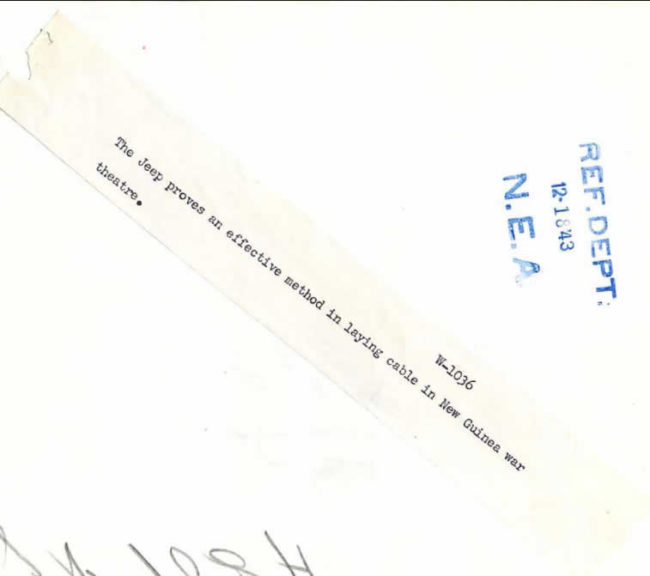 W-1036
The Jeep proves an effective method in laying cable in New Guinea war
theatre.
REF.DEPT.
N.E.A.